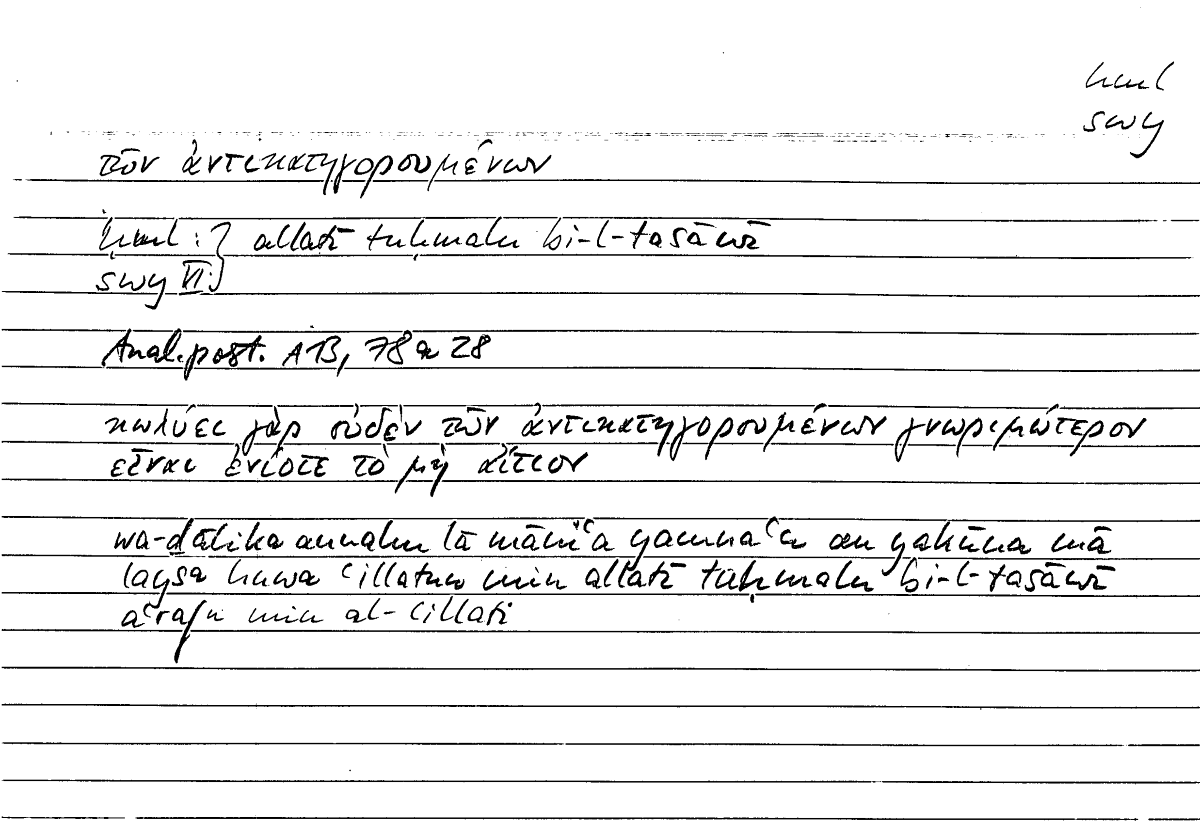 ḥml
swy
τῶν ἀντικατηγορουμένων
ḥml : } allatī tuḥmalu bi-l-tasāwī
swy VI: }
Anal. post. A 13, 78 a 28
κωλύει γὰρ οὐδὲν τῶν ἀντικατηγορουμένων γνωριμώτερον
εἶναι ἐνίοτε τὸ μὴ αἴτιον
wa-ḏālika annahu lā māniʿa yamnaʿu an yakūna mā
laysa huwa ʿillatun min allatī tuḥmalu bi-l-tasāwī
aʿrafu min al-ʿillati